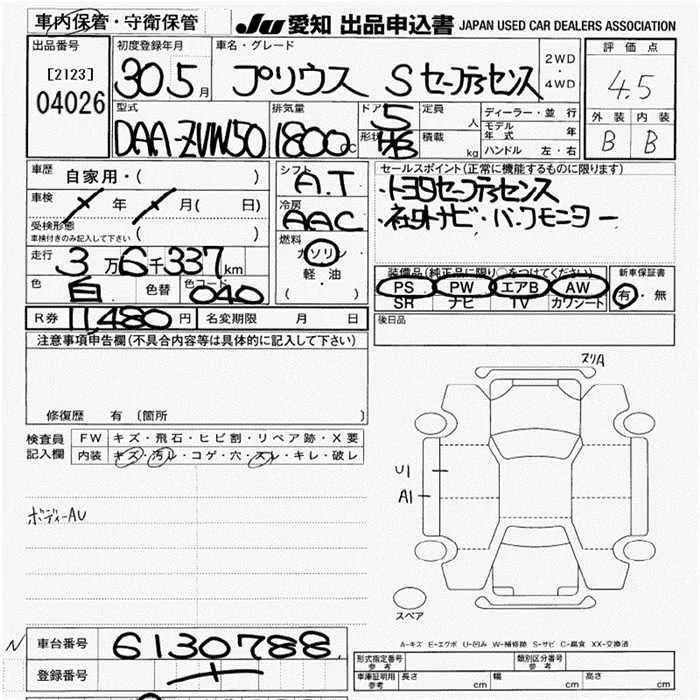 車内保管・守衛保管
JU 愛知 出品申込書 JAPAN USED CAR DEALERS ASSOCIATION
出品番号
[2123]
04026
初度登録年月
30 5 月
車名・グレード
プリウス Sセーフティセンス
2WD
・
4WD
評価点
4.5
外装 内装
B B
型式
DAA-ZVW50
排気量
1800 cc
ドア 5
形状 HB
定員 人
積載 kg
ディーラー・並行
モデル年式 年
ハンドル 左・右
車歴 自家用・( )
車検 年 月( 日)
受検形態
車検付きのみ記入して下さい ( )
走行 3万6千337km
色 白 色替 色コード 040
シフト
A.T
冷房
AAC
燃料
ガソリン
軽・油
( )
セールスポイント(正常に機能するものに限ります)
・トヨタセーフティセンス
・社外ナビ・バックモニター
装備品(純正品に限り○をつけてください)
PS PW エアB AW
SR ナビ TV カワシート
新車保証書
有・無
R券 11,480 円 名変期限 月 日
後日品
注意事項申告欄(不具合内容等は具体的に記入して下さい)
修復歴 有 (箇所 )
検査員
記入欄
FW キズ・飛石・ヒビ割・リペア跡・X要
内装 キズ・汚ル・コゲ・穴・スレ・キレ・破レ
ボディーAU
スリA
U1
A1
スペア
A-キズ E-エグボ U-凹み W-補修跡 S-サビ C-腐食 XX-交換済
N
車台番号 6130788
登録番号
形式指定番号 参考
類別区分番号 参考
車庫証明用 参考 長さ cm 幅 cm 高さ cm